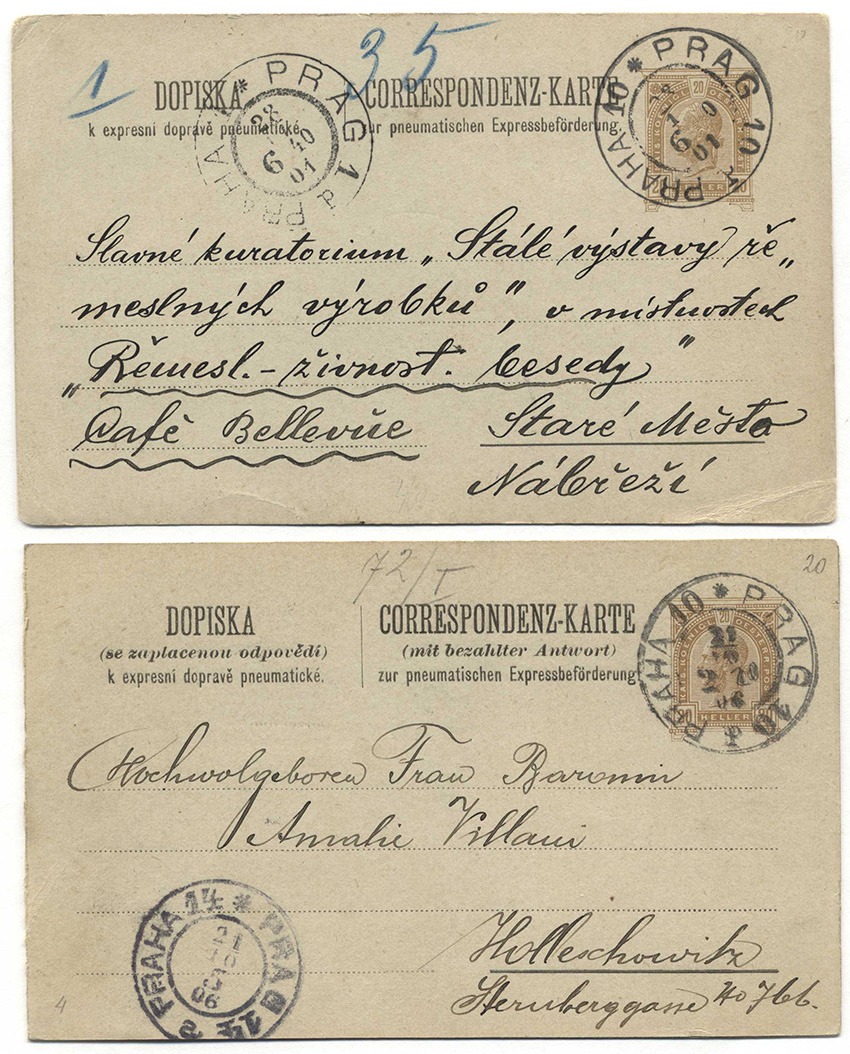 1 35
DOPISKA CORRESPONDENZ-KARTE
k expresní dopravě pneumatické. zur pneumatischen Expressbeförderung.
PRAG 1 PRAHA 1
28
6 40
01
PRAG 10 PRAHA 10
6
01
20
HELLER
Slavné kuratorium „Stálé výstavy ře„
meslných výrobků", v místnostech
„Řemesl.-živnost. besedy"
Café Bellevue Staré Město
Nábřeží
72/I
20
DOPISKA CORRESPONDENZ-KARTE
(se zaplacenou odpovědí) (mit bezahlter Antwort)
k expresní dopravě pneumatické. zur pneumatischen Expressbeförderung.
PRAG 10 PRAHA 10
21
10
06
20
HELLER
Hochwolgeboren Frau Baronin
Amalie Villani
PRAHA 14 PRAG 14
21
06
Holleschowitz
Sternberggasse
4